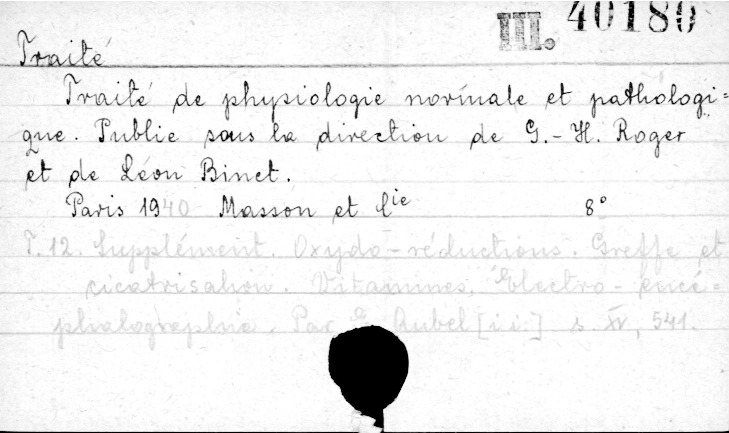 III. 40180
Traité
Traité de physiologie normale et pathologi=
que. Publie sous la direction de G.-H. Roger
et de Léon Binet.
Paris 1940 Masson et Cie 8°
T. 12. Supplément. Oxydo-réductions. Greffe et
cicatrisation. Vitamines, Electro-encé=
phalographie. Par E. Aubel [i i.] s. XV, 541.